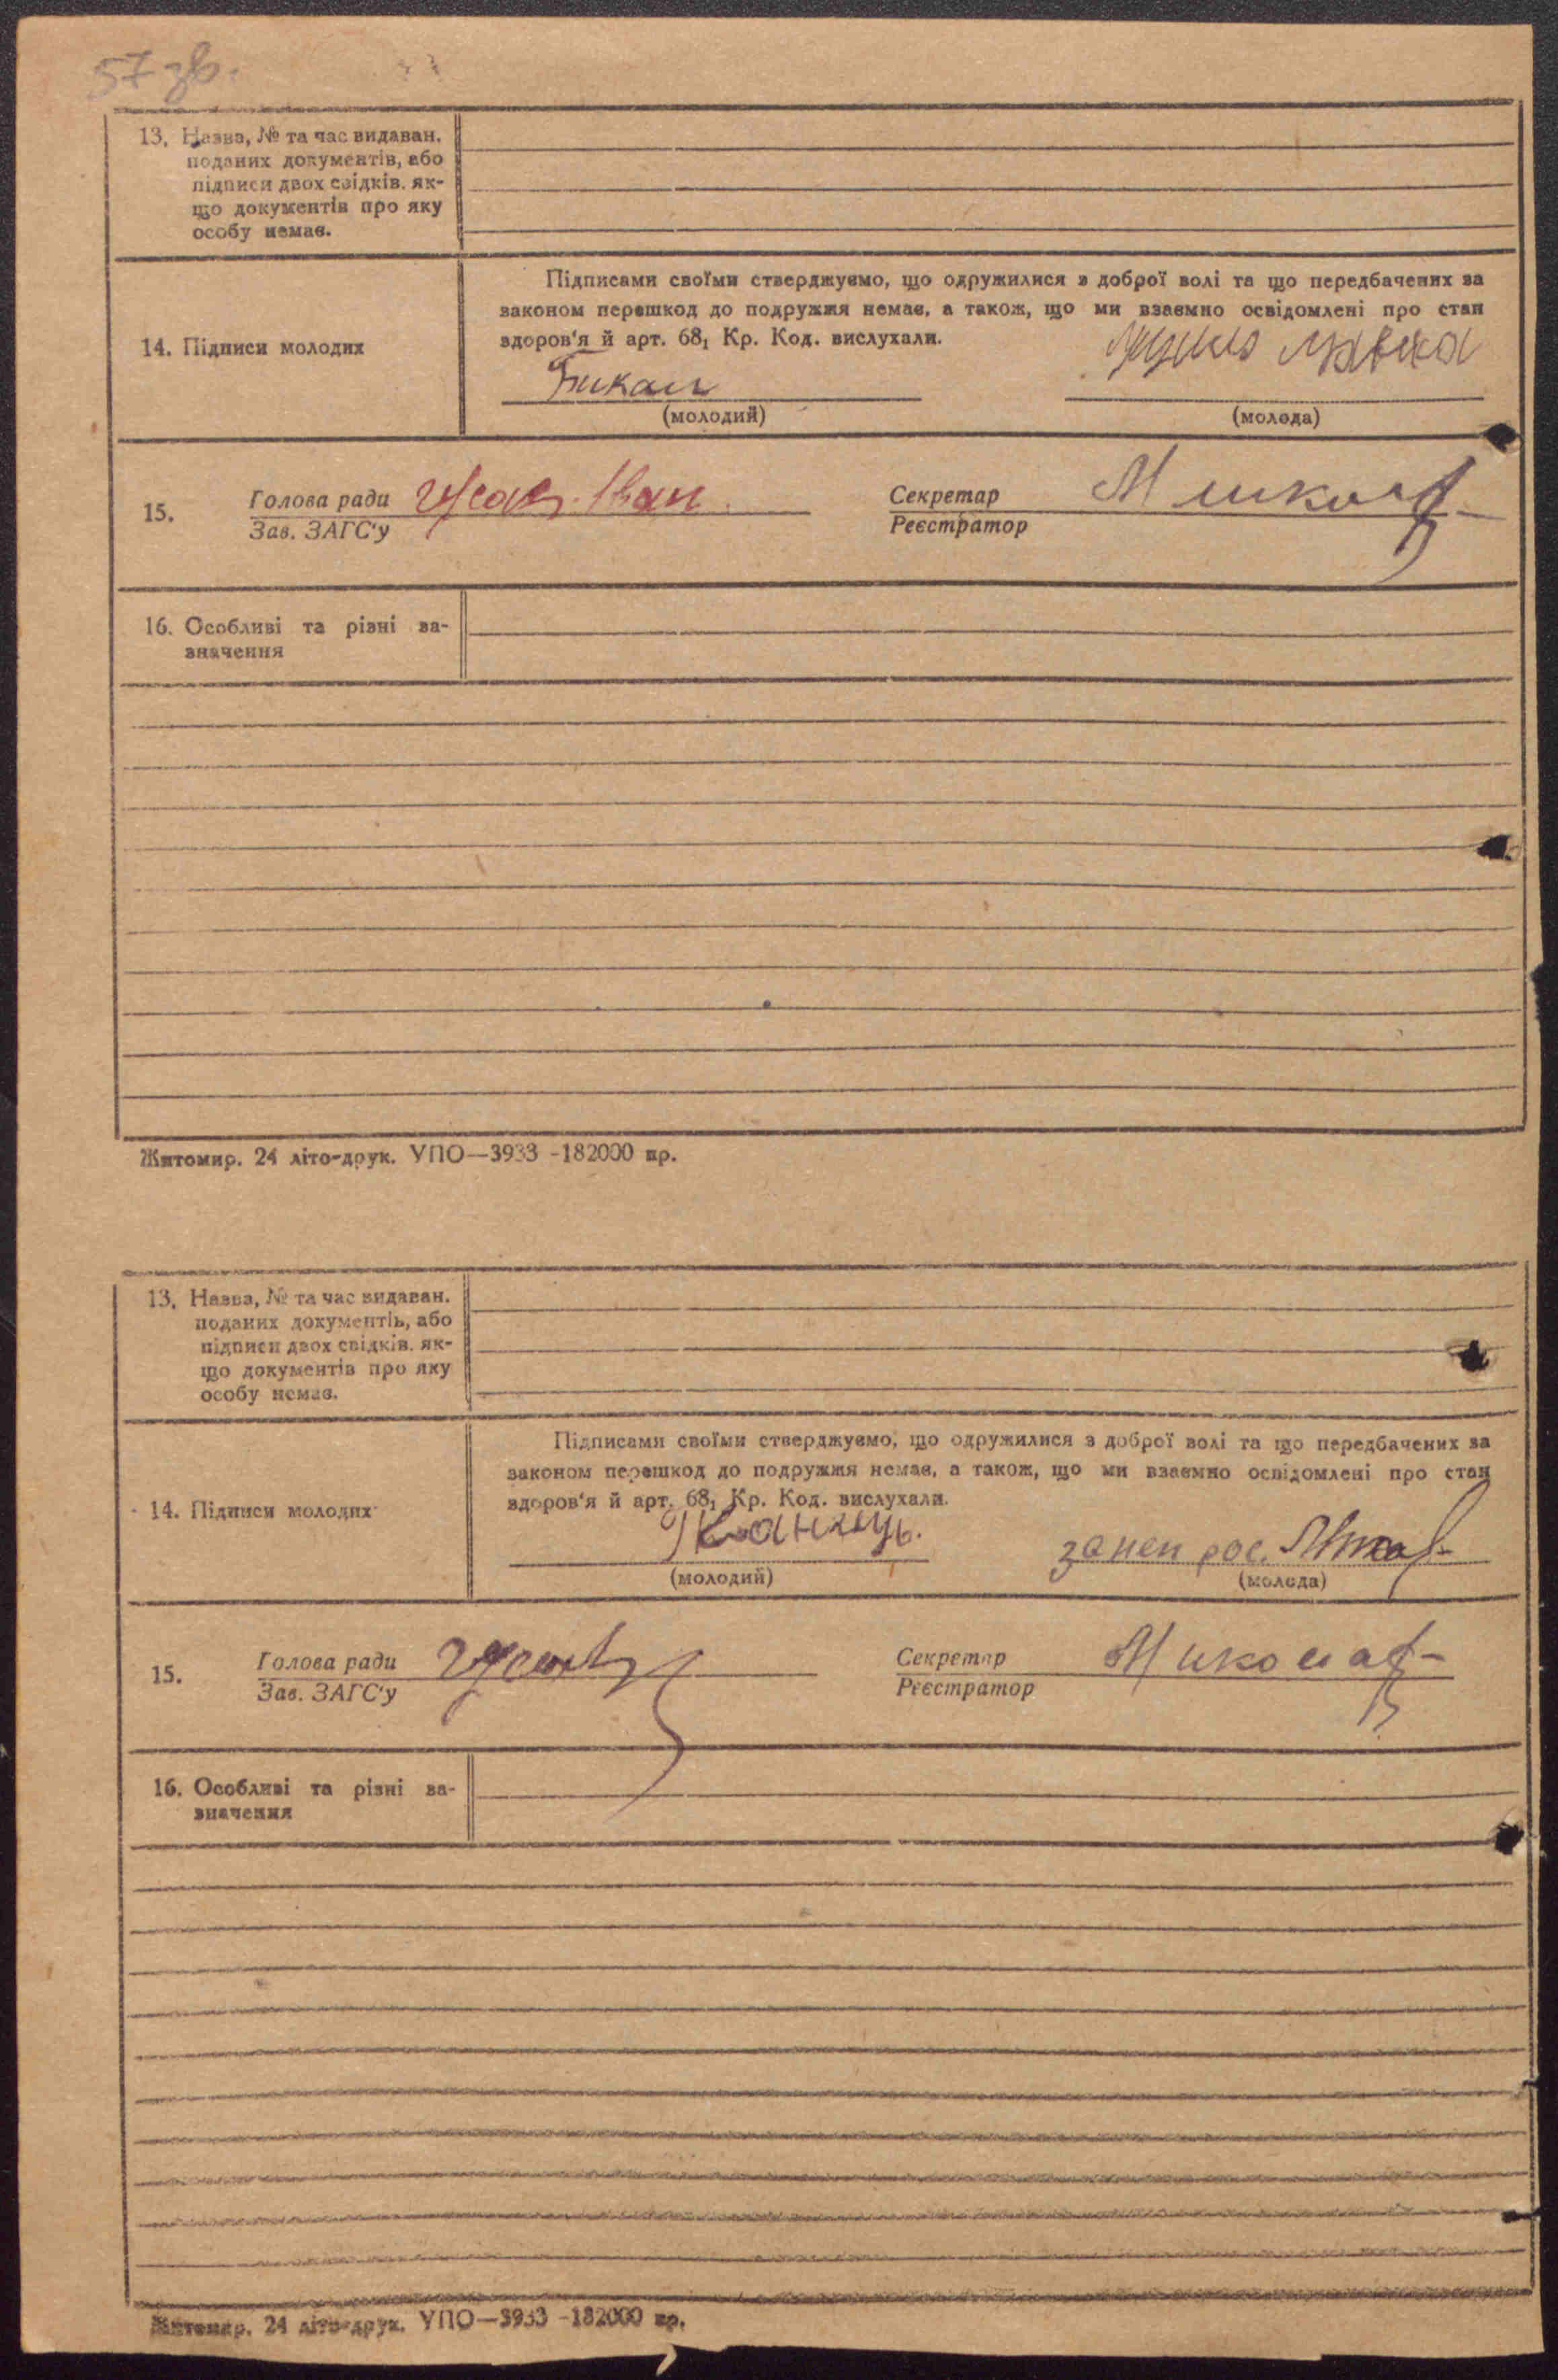 57 зв.
13. Назва, № та час видаван.
поданих документів, або
підписи двох свідків, як-
що документів про яку
особу немає.
Підписами своїми стверджуємо, що одружилися з доброї волі та що передбачених за
законом перешкод до подружжя немає, а також, що ми взаємно освідомлені про стан
здоров'я й арт. 68₁ Кр. Код. вислухали.
14. Підписи молодих
(молодий) (молода)
15. Голова ради Іван Секретар
Зав. ЗАГС'у Реєстратор
16. Особливі та різні за-
значення
Житомир. 24 літо-друк. УПО—3933 -182000 пр.
13. Назва, № та час видаван.
поданих документів, або
підписи двох свідків, як-
що документів про яку
особу немає.
Підписами своїми стверджуємо, що одружилися з доброї волі та що передбачених за
законом перешкод до подружжя немає, а також, що ми взаємно освідомлені про стан
здоров'я й арт. 68₁ Кр. Код. вислухали.
14. Підписи молодих
(молодий) (молода)
15. Голова ради Секретар
Зав. ЗАГС'у Реєстратор
16. Особливі та різні за-
значення
Житомир. 24 літо-друк. УПО—3933 -182000 пр.